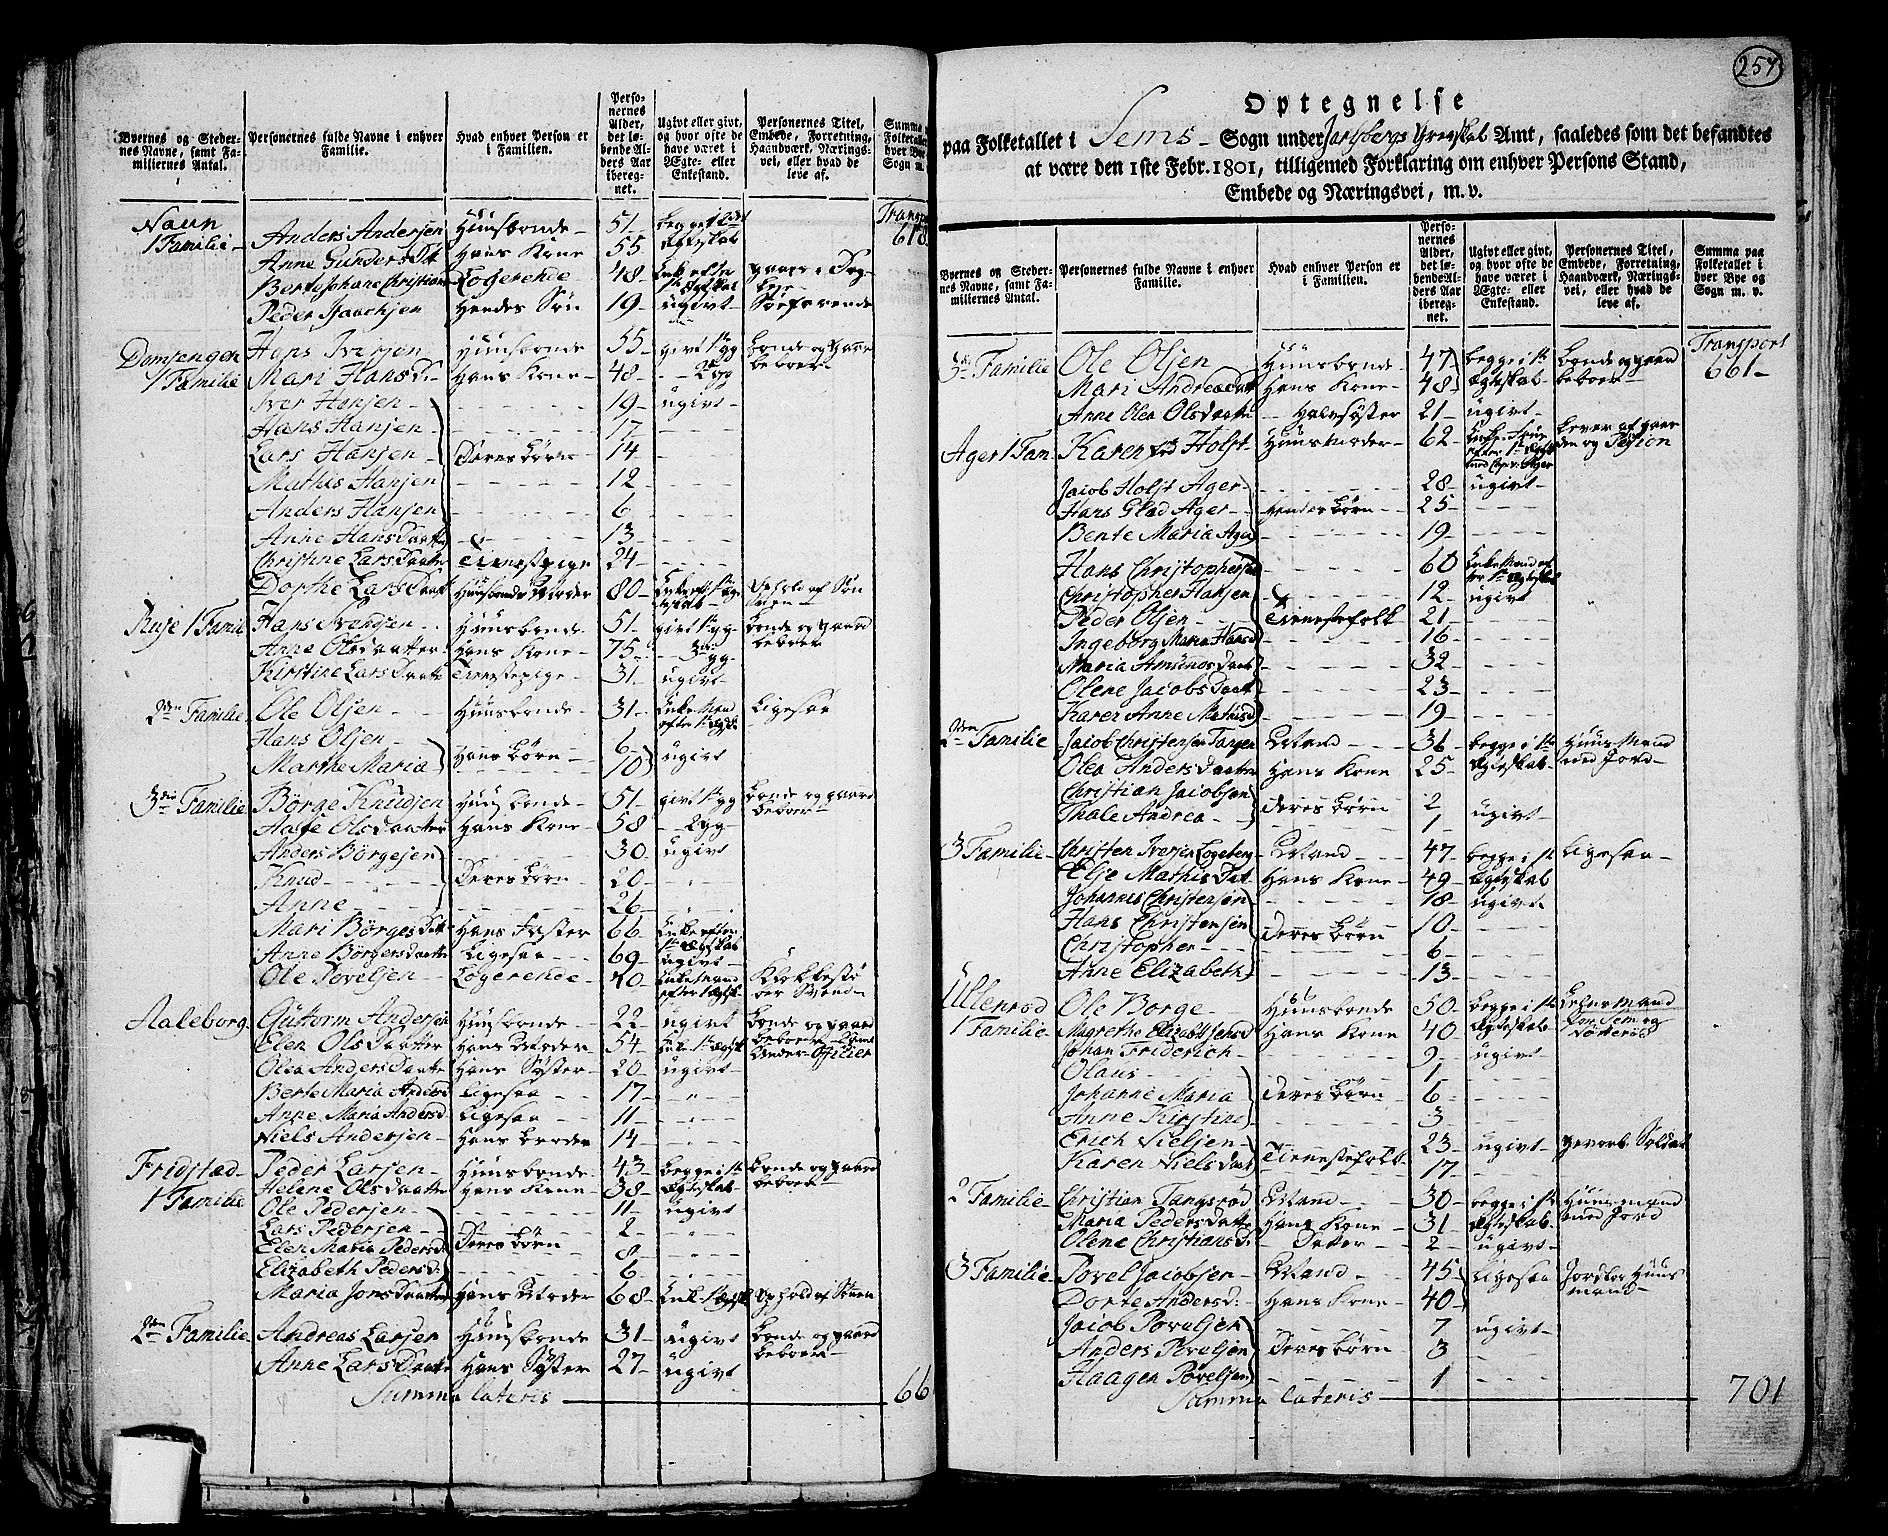 Byernes og Stedernes Navne, samt Familiernes Antal.
Personernes fulde Navne i enhver Familie.
Hvad enhver Person er i Familien.
Personernes Alder, det løbende Alders Aar iberegnet.
Ugivt eller givt, og hvor ofte de have været i Ægte- eller Enkestand.
Personernes Titel, Embede, Forretning, Haandværk, Næringsvei, eller hvad de leve af.
Summa
Transp
618
Naun 1 Familie - Anders Andersen Huusbonde - 51 - begge i 2det
Anne Gundersdt Hans Kone 55 Ægteskab
Berthe Johane Christians Logerende 48 - Enke efter 1st Ægteskab
Peder Isaachsen Hendes Søn 19 - ugivt - Søefarende
Domsengen 1 Familie Hans Iversen Huusbonde 55 - givt 1ste g bonde og gaard beboer
Mari Hansd. Hans Kone - 48 - - - 2 g
Iver Hansen - 19 - ugivt
Hans Hansen - 17 -
Lars Hansen - Deres børn 14 -
Mathis Hansen 12
Anders Hansen 6
Anne Hansdaatter 13
Christine Larsdaatter Tienestepige 24 -
Dorthe Larsdaatt Huusbondes Moder 80 - Ophold af Søn
Ruse 1 Famil Hans Svendsen - Huusbonde - 51 - givt 1ste g - bonde og gaard beboer
Anne Olsdaatter Hans Kone - 75 - 3die g -
Kirstine Larsdaatt Tienestepige - 31 - ugivt
2den Familie Ole Olsen - Huusbonde - 31 - Enkemand efter 1st Ægtsk Ligesaa
Hans Olsen - 6 - ugivt
Marthe Maria Hans børn - 10
3die Familie Børge Knudsen Huusbonde - 51 - givt 1ste g bonde og gaard beboer
Olsdaatter Hans Kone - 58 - 2 g -
Anders Børgesen 30 - ugivt
Knud - - - Deres børn - 20 -
Anne - 26 -
Mari Børgesdatt Hans Faster 66 - Enke efter 1st Ægteskab
Anne Børgersdaatter Ligesaa - 69 - ugivt
Ole Povelsen - Logerende - 40 - Enkemand efter 1 Ægtsk
Aaleborg Guttorm Andersen Huusbonde - 22 - ugivt bonde og gaard beboer
Elen Olsdaatter Hans Moder - 54 - Enk. 1st Ægtsk Under Officier
Olea Andersdaatte Hans Søster - 20 - ugivt -
Berte Maria Andersd Ligesaa - 17 -
Anne Maria Andersd Ligesaa - 11 -
Niels Andersen - Hans broder 14 -
Fridstad - 1 Familie Peder Larsen - Huusbonde - 43 - begge i 1ste bonde og gaard beboer
Helene Olsdaatter Hans Kone - 38 - Ægteskab
Ole Pedersen - 11 - ugivt
Lars Pedersen - 2 -
Elen Maria Pedersd. Deres børn 8 -
Elizabeth Pedersd. 6 -
Maria Jonsdaatter Hans Moder 68 - Enk. 1 Ægtsk Ophold af Sønen
2den Familie Andreas Larsen Huusbonde 31 - ugivt bonde og gaard beboer
Anne Larsdaatte Hans Søster 27 - ugivt
Summa Lateris 66
257
Optegnelse
paa Folketallet i Sems - Sogn under Jarlsbergs Grevskab Amt, saaledes som det befandtes
at være den 1ste Febr. 1801, tilligemed Forklaring om enhver Persons Stand,
Embede og Næringsvei, m. v.
Byernes og Stedernes Navne, samt Familiernes Antal.
Personernes fulde Navne i enhver Familie.
Hvad enhver Person er i Familien.
Personernes Alder, det løbende Alders Aar iberegnet.
Ugivt eller givt, og hvor ofte de have været i Ægte- eller Enkestand.
Personernes Titel, Embede, Forretning, Haandværk, Næringsvei, eller hvad de leve af.
Summa paa Folketallet i hver Bye og Sogn m. v.
Transport 661 -
3die Familie Ole Olsen Huusbonde - 47 begge i 1ste bonde og gaard beboer
Mari Andreadatt Hans Kone - 48 Ægteskab -
Anne Olea Olsdaatte - Halvsøster 21 - ugivt -
Ager 1 Fam - Karen fød Holst - Huusmoder - 62 - lever af gaarden og Pension
Jacob Holst Ager - 28 - ugivt -
Hans Glad Ager - Hendes børn - 25 -
Bente Maria Ager 19 -
Hans Christophersen 60 Enkemand efter 1st Ægteskab
Christopher Hansen 12 - ugivt
Peder Olsen - Tienestefolk 21 -
Ingeborg Maria Hansd 16 -
Maria Amundsdaatt 32 -
Olene Jacobsdaatt 23 -
Karen Anne Mathisd 19 -
2den Familie Jacob Christensen Mand - 36 - begge i 1ste Huusmand med Jord -
Olea Andersdaatter Hans Kone 25 - Ægteskab -
Christian Jacobsen Deres børn 2 ugivt -
Thale Andrea - 1 -
3 Familie - Christen Iversen Mand - 47 - begge i 1st Ligesaa -
Else Mathisdatt Hans Kone - 49 - Ægteskab
Johannes Christensen 18 - ugivt -
Hans Christensen Deres børn 10 -
Christopher - 6 -
Anne Elizabeth 13 -
Ullenrød 1 Familie - Ole Borge - Huusbonde 50 - begge i 1ste
Magrethe Elizabt Jensd Hans Kone 40 Ægteskab
Johan Friderich - 9 - ugivt
Olaus - 1 -
Johanne Maria Deres børn - 6 -
Anne Kirstine 3 -
Erich Nielsen - Tienestefolk 23 - ugivt - gevorb. Soldat
Karen Nielsdaat 17 -
2 Familie - Christian Tangsrød Mand - 30 - begge i 1ste Huusmand med Jord
Maria Pedersdatte Hans Kone - 31 - Ægteskab -
Olene Christiansd. - Dotter - 2 - ugivt -
3 Familie - Povel Jacobsen - Mand - 45 Ligesaa Jordløs Huusmand
Dorte Andersd. - Hans Kone - 40
Jacob Povelsen 7 ugivt -
Anders Povelsen Deres børn 3
Haagen Povelsen 1
Summa Lateris 701